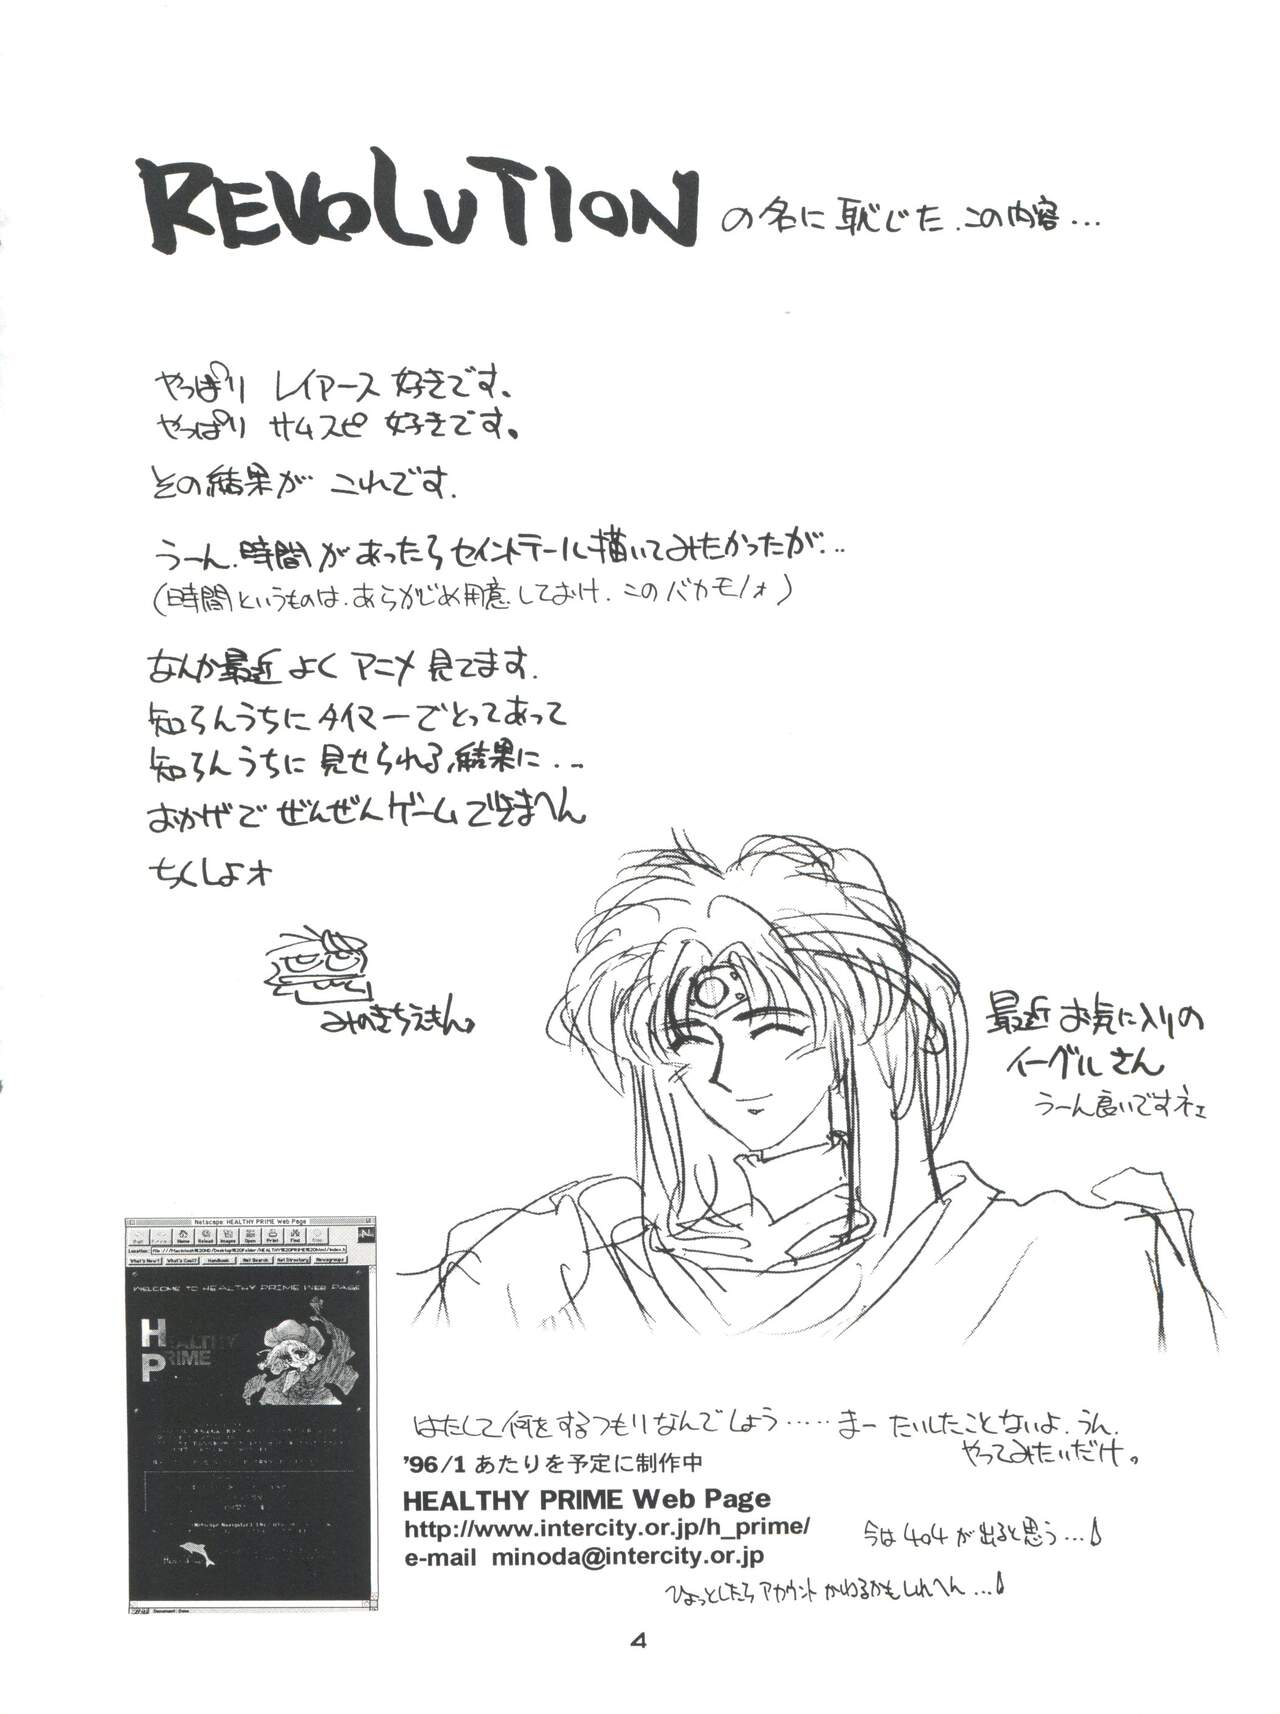 REVOLUTION の名に恥じた.この内容...
やっぱり レイアース 好きです。
やっぱり サムスピ 好きです。
その結果が これです.
うーん.時間があったらセイントテール描いてみたかったが...
(時間というものは.あらかじめ用意しておけ.このバカモノォ)
なんか最近 よく アニメ 見てます.
知らんうちに タイマーでとってあって
知らんうちに 見せられる結果に...
おかげで ぜんぜんゲームできまへん
ちくしょオ
みのきちえもん。
最近 お気に入りの
イーグルさん
うーん良いですネェ
Netscape: HEALTHY PRIME Web Page
Home Reload Images Open Print Find
Location:
What's New? What's Cool? Handbook Net Search Net Directory Newsgroups
WELCOME TO HEALTHY PRIME WEB PAGE
HEALTHY
PRIME
Document: Done
はたして何をするつもりなんでしょう......まー たいしたことないよ.うん.
やってみたいだけ。
'96/1 あたりを予定に制作中
HEALTHY PRIME Web Page
http://www.intercity.or.jp/h_prime/
今は404が出ると思う...
e-mail minoda@intercity.or.jp
ひょっとしたら アカウント かわるかもしれへん...
4